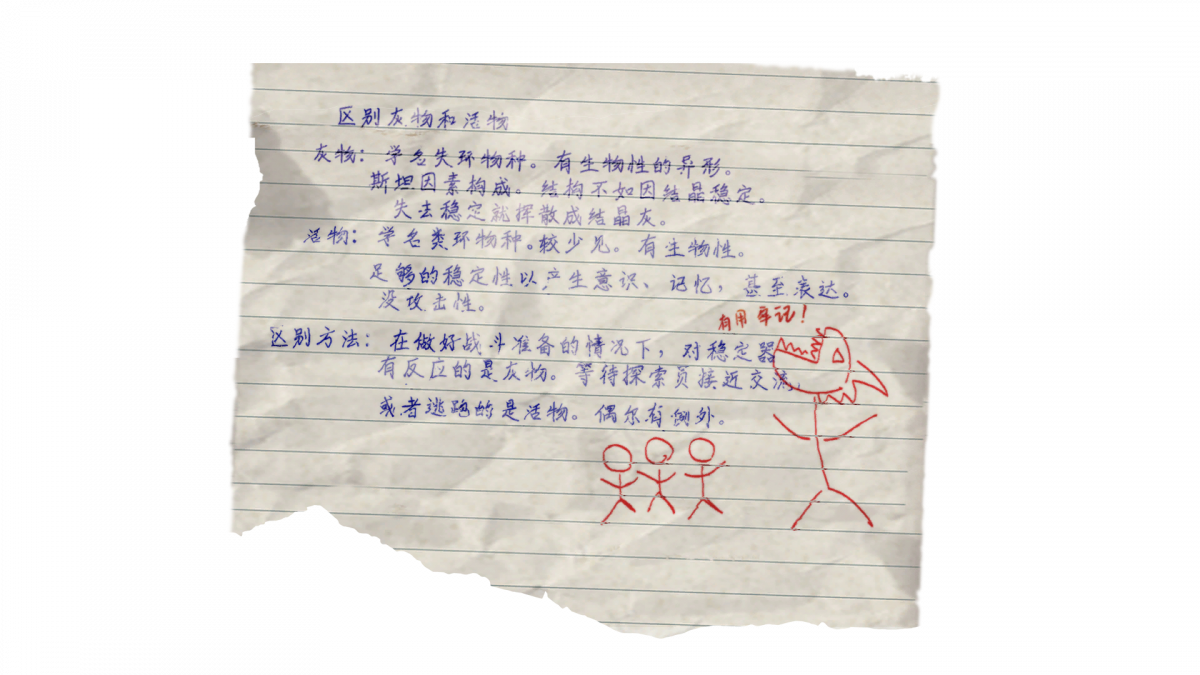 区别灰物和活物
灰物：学名失环物种。有生物性的异形。
斯坦因素构成。结构不如因结晶稳定。
失去稳定就挥散成结晶灰。
活物：学名类环物种。较少见。有生物性。
足够的稳定性以产生意识、记忆，甚至表达。
没攻击性。
有用 牢记！
区别方法：在做好战斗准备的情况下，对稳定器
有反应的是灰物。等待探索员接近交流，
或者逃跑的是活物。偶尔有例外。